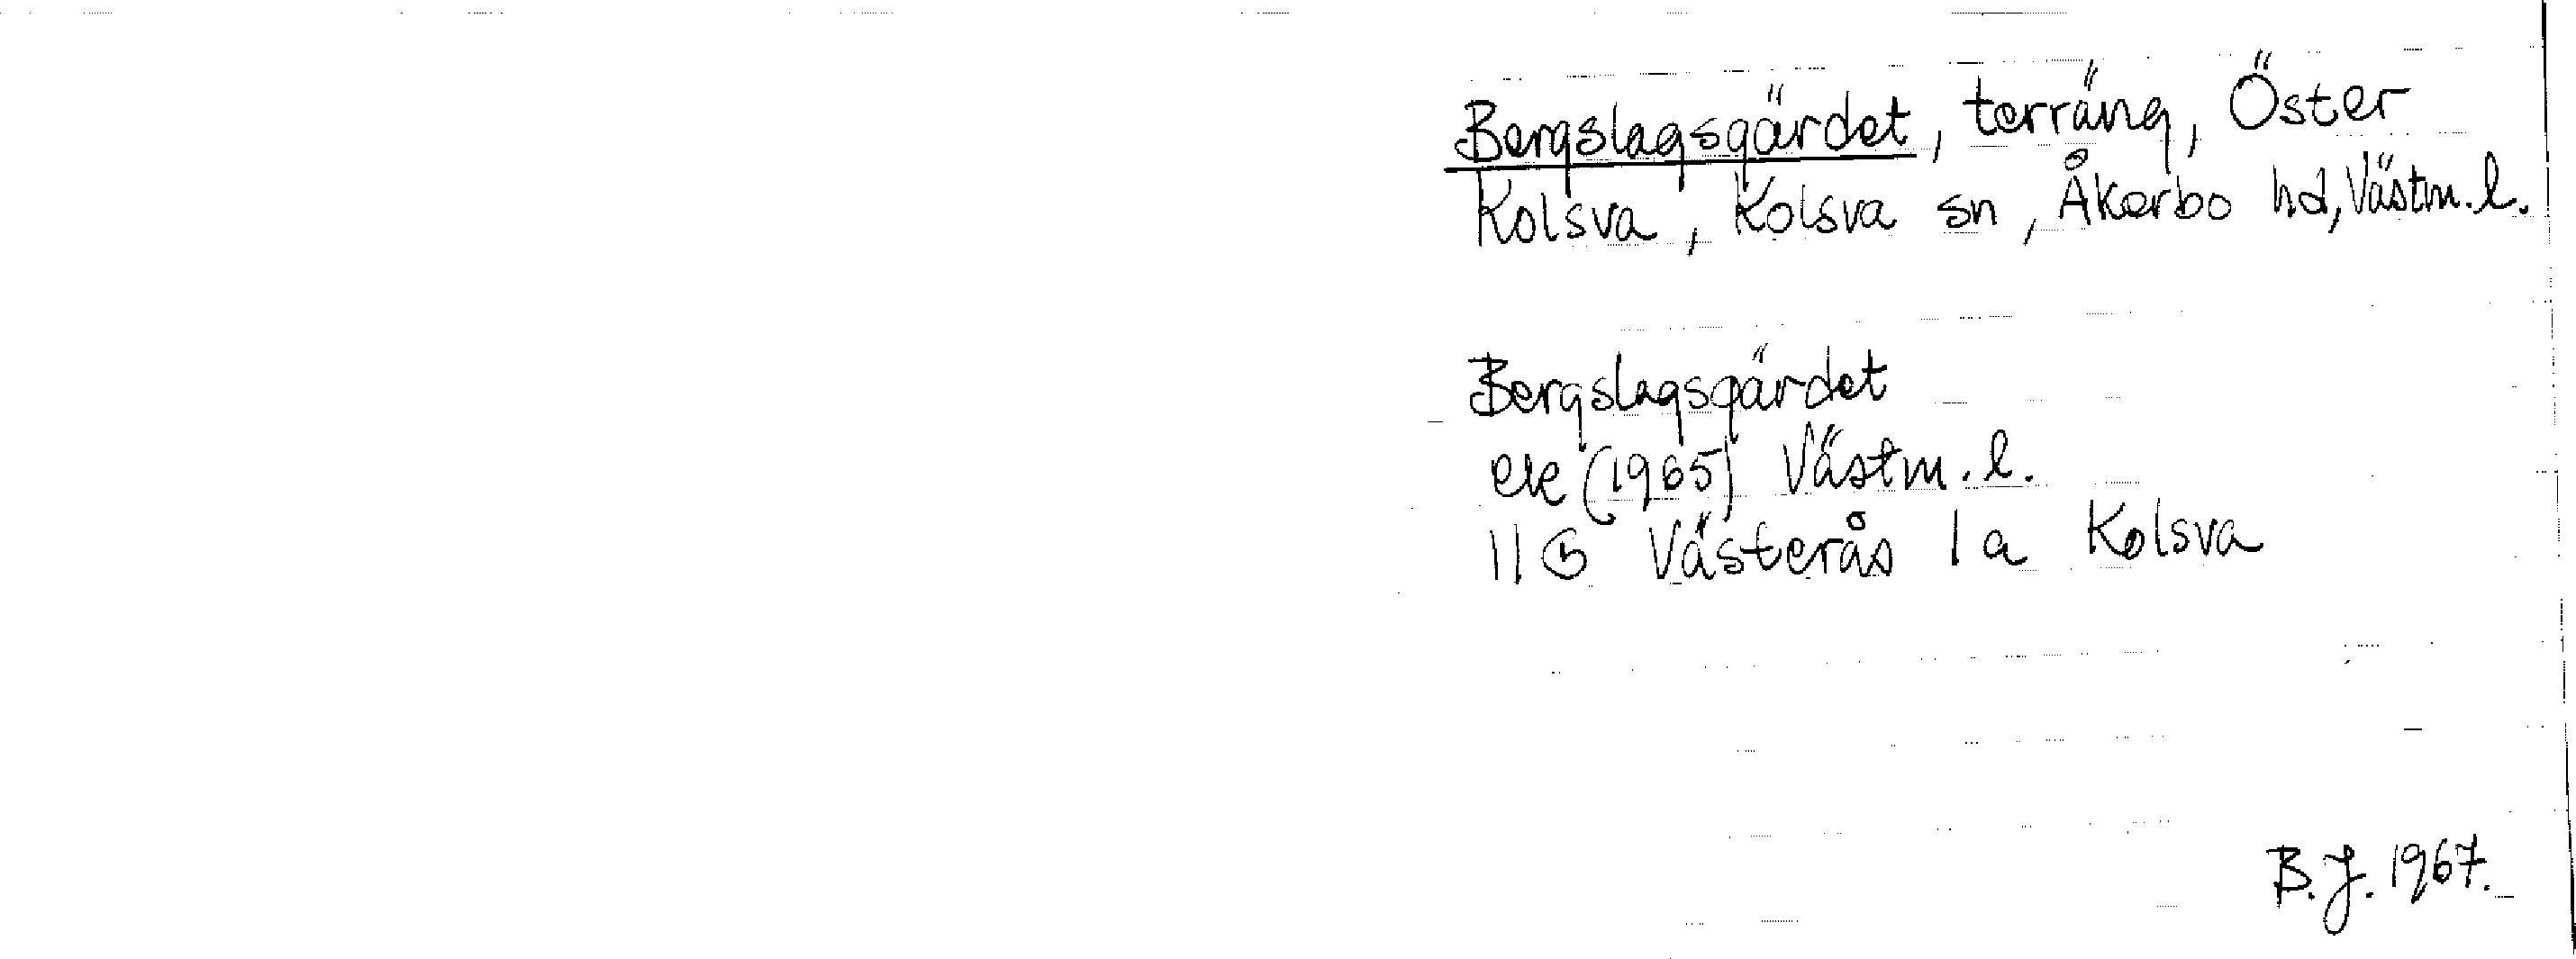 Bergslagsgärdet, terräng, Öster
Kolsva, Kolsva sn, Åkerbo hd, Västm. l.
Bergslagsgärdet
ek (1965) Västm. l.
11G Västerås 1a Kolsva
B.J. 1967.